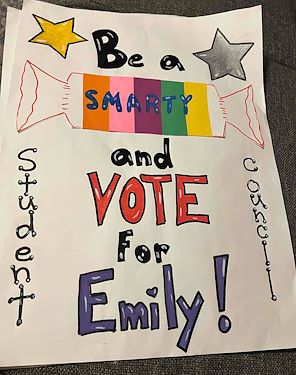 Be a
SMARTY
and
VOTE
for
Emily!
Student
Council